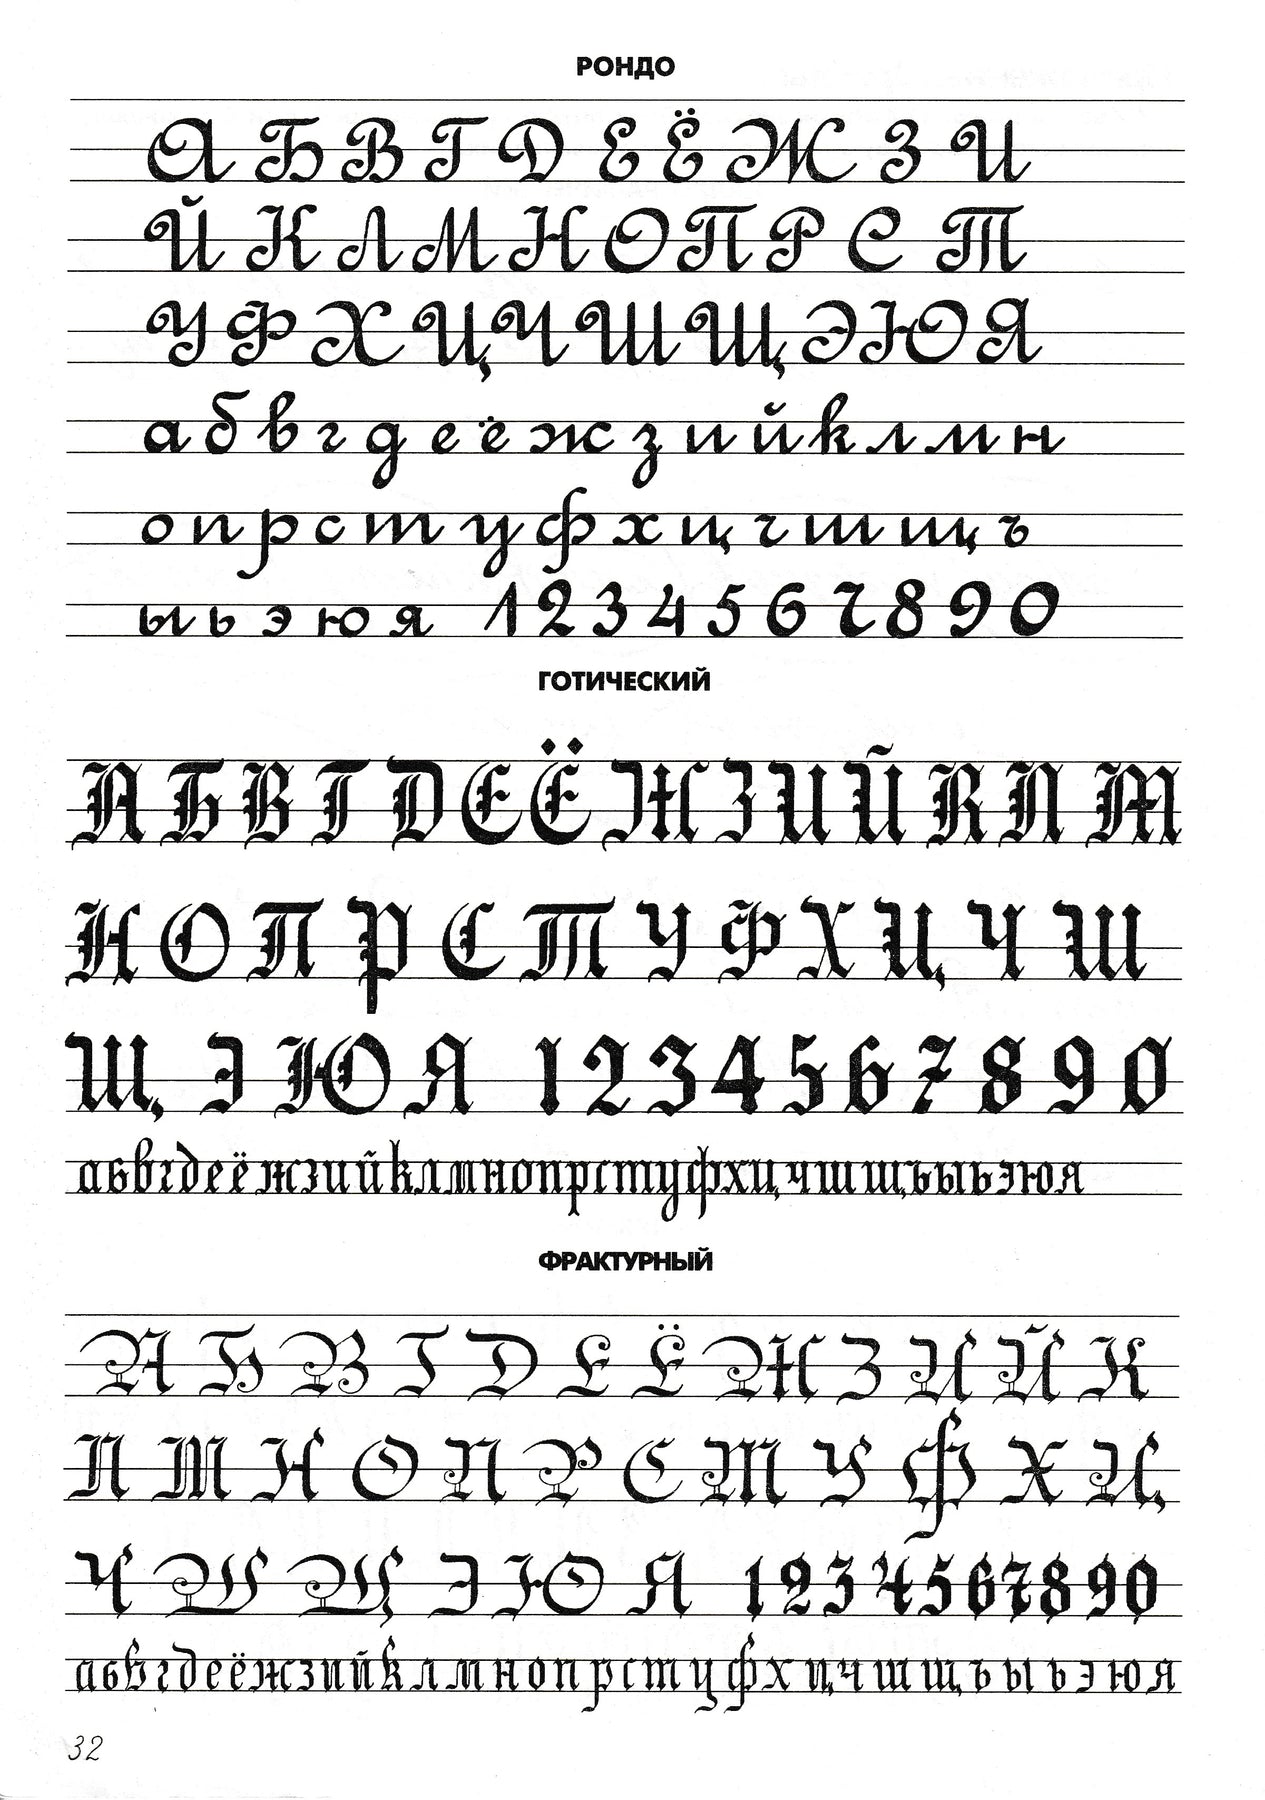 РОНДО
А Б В Г Д Е Ё Ж З И
Й К Л М Н О П Р С Т
У Ф Х Ц Ч Ш Щ Э Ю Я
а б в г д е ё ж з и й к л м н
о п р с т у ф х ц ч ш щ ъ
ы ь э ю я 1 2 3 4 5 6 7 8 9 0
ГОТИЧЕСКИЙ
А Б В Г Д Е Ё Ж З И Й К Л М
Н О П Р С Т У Ф Х Ц Ч Ш
Щ Э Ю Я 1 2 3 4 5 6 7 8 9 0
а б в г д е ё ж з и й к л м н о п р с т у ф х ц ч ш щ ъ ы ь э ю я
ФРАКТУРНЫЙ
А Б В Г Д Е Ё Ж З И Й К
Л М Н О П Р С Т У Ф Х Ц
Ч Ш Щ Э Ю Я 1 2 3 4 5 6 7 8 9 0
а б в г д е ё ж з и й к л м н о п р с т у ф х ц ч ш щ ъ ы ь э ю я
32